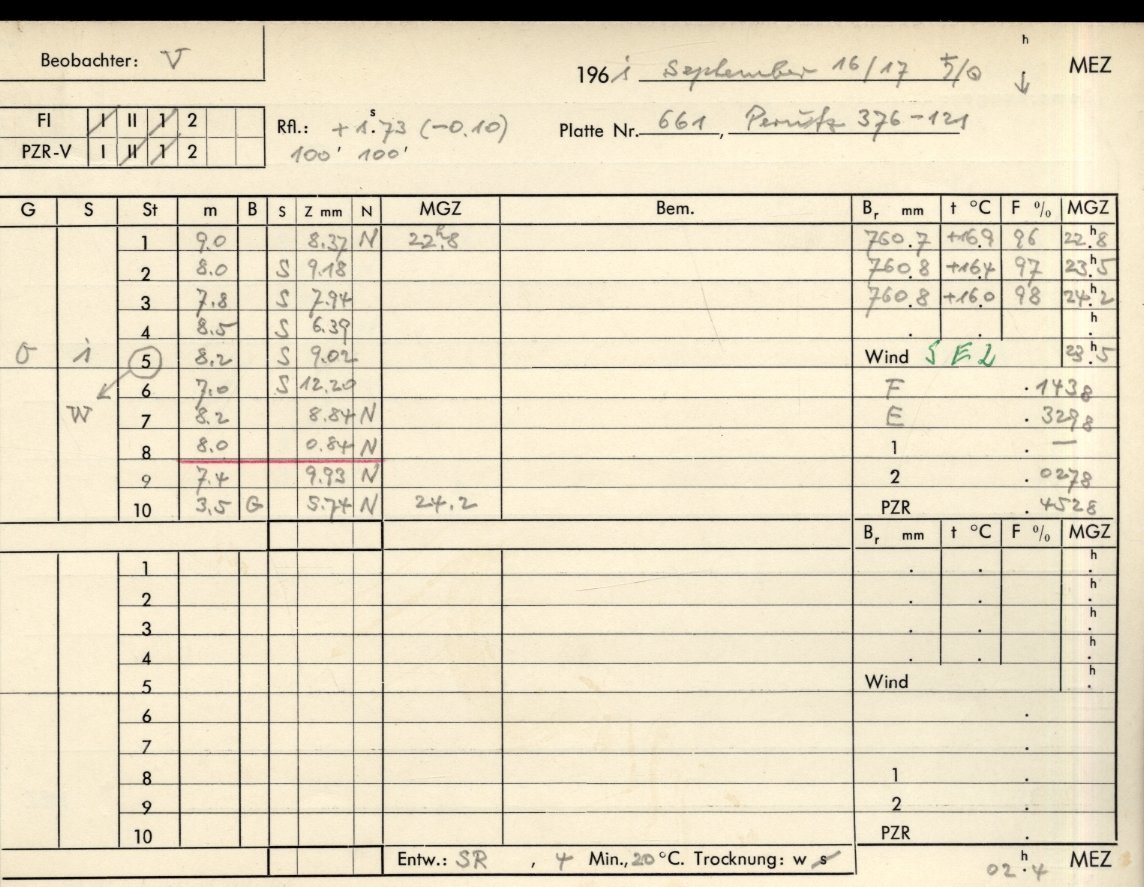 Beobachter: V
1961 September 16/17 ♄/☉ h ↓ MEZ
FI I II 1 2
PZR-V I II 1 2
Rfl.: +1.ˢ73 (-0.10)
100' 100'
Platte Nr. 661, Perutz 376-121
G S St m B S Z mm N MGZ Bem. Br mm t °C F % MGZ
1 9.0 8.37 N 22.ʰ8 760.7 +16.9 96 22.ʰ8
2 8.0 S 9.18 760.8 +16.4 97 23.ʰ5
3 7.8 S 7.94 760.8 +16.0 98 24.ʰ2
4 8.5 S 6.39 . . h.
σ i 5 8.2 S 9.02 Wind S E 2 23.ʰ5
6 7.0 S 12.20 F .1438
W 7 8.2 8.84 N E .3298
8 8.0 0.84 N 1 . —
9 7.4 9.93 N 2 .0278
10 3.5 G 5.74 N 24.2 PZR .4528
Br mm t °C F % MGZ
1 . . h.
2 . . h.
3 . . h.
4 . . h.
5 Wind h.
6 .
7 .
8 1 .
9 2 .
10 PZR .
Entw.: SR , 4 Min., 20 °C. Trocknung: w s 02.ʰ4 MEZ